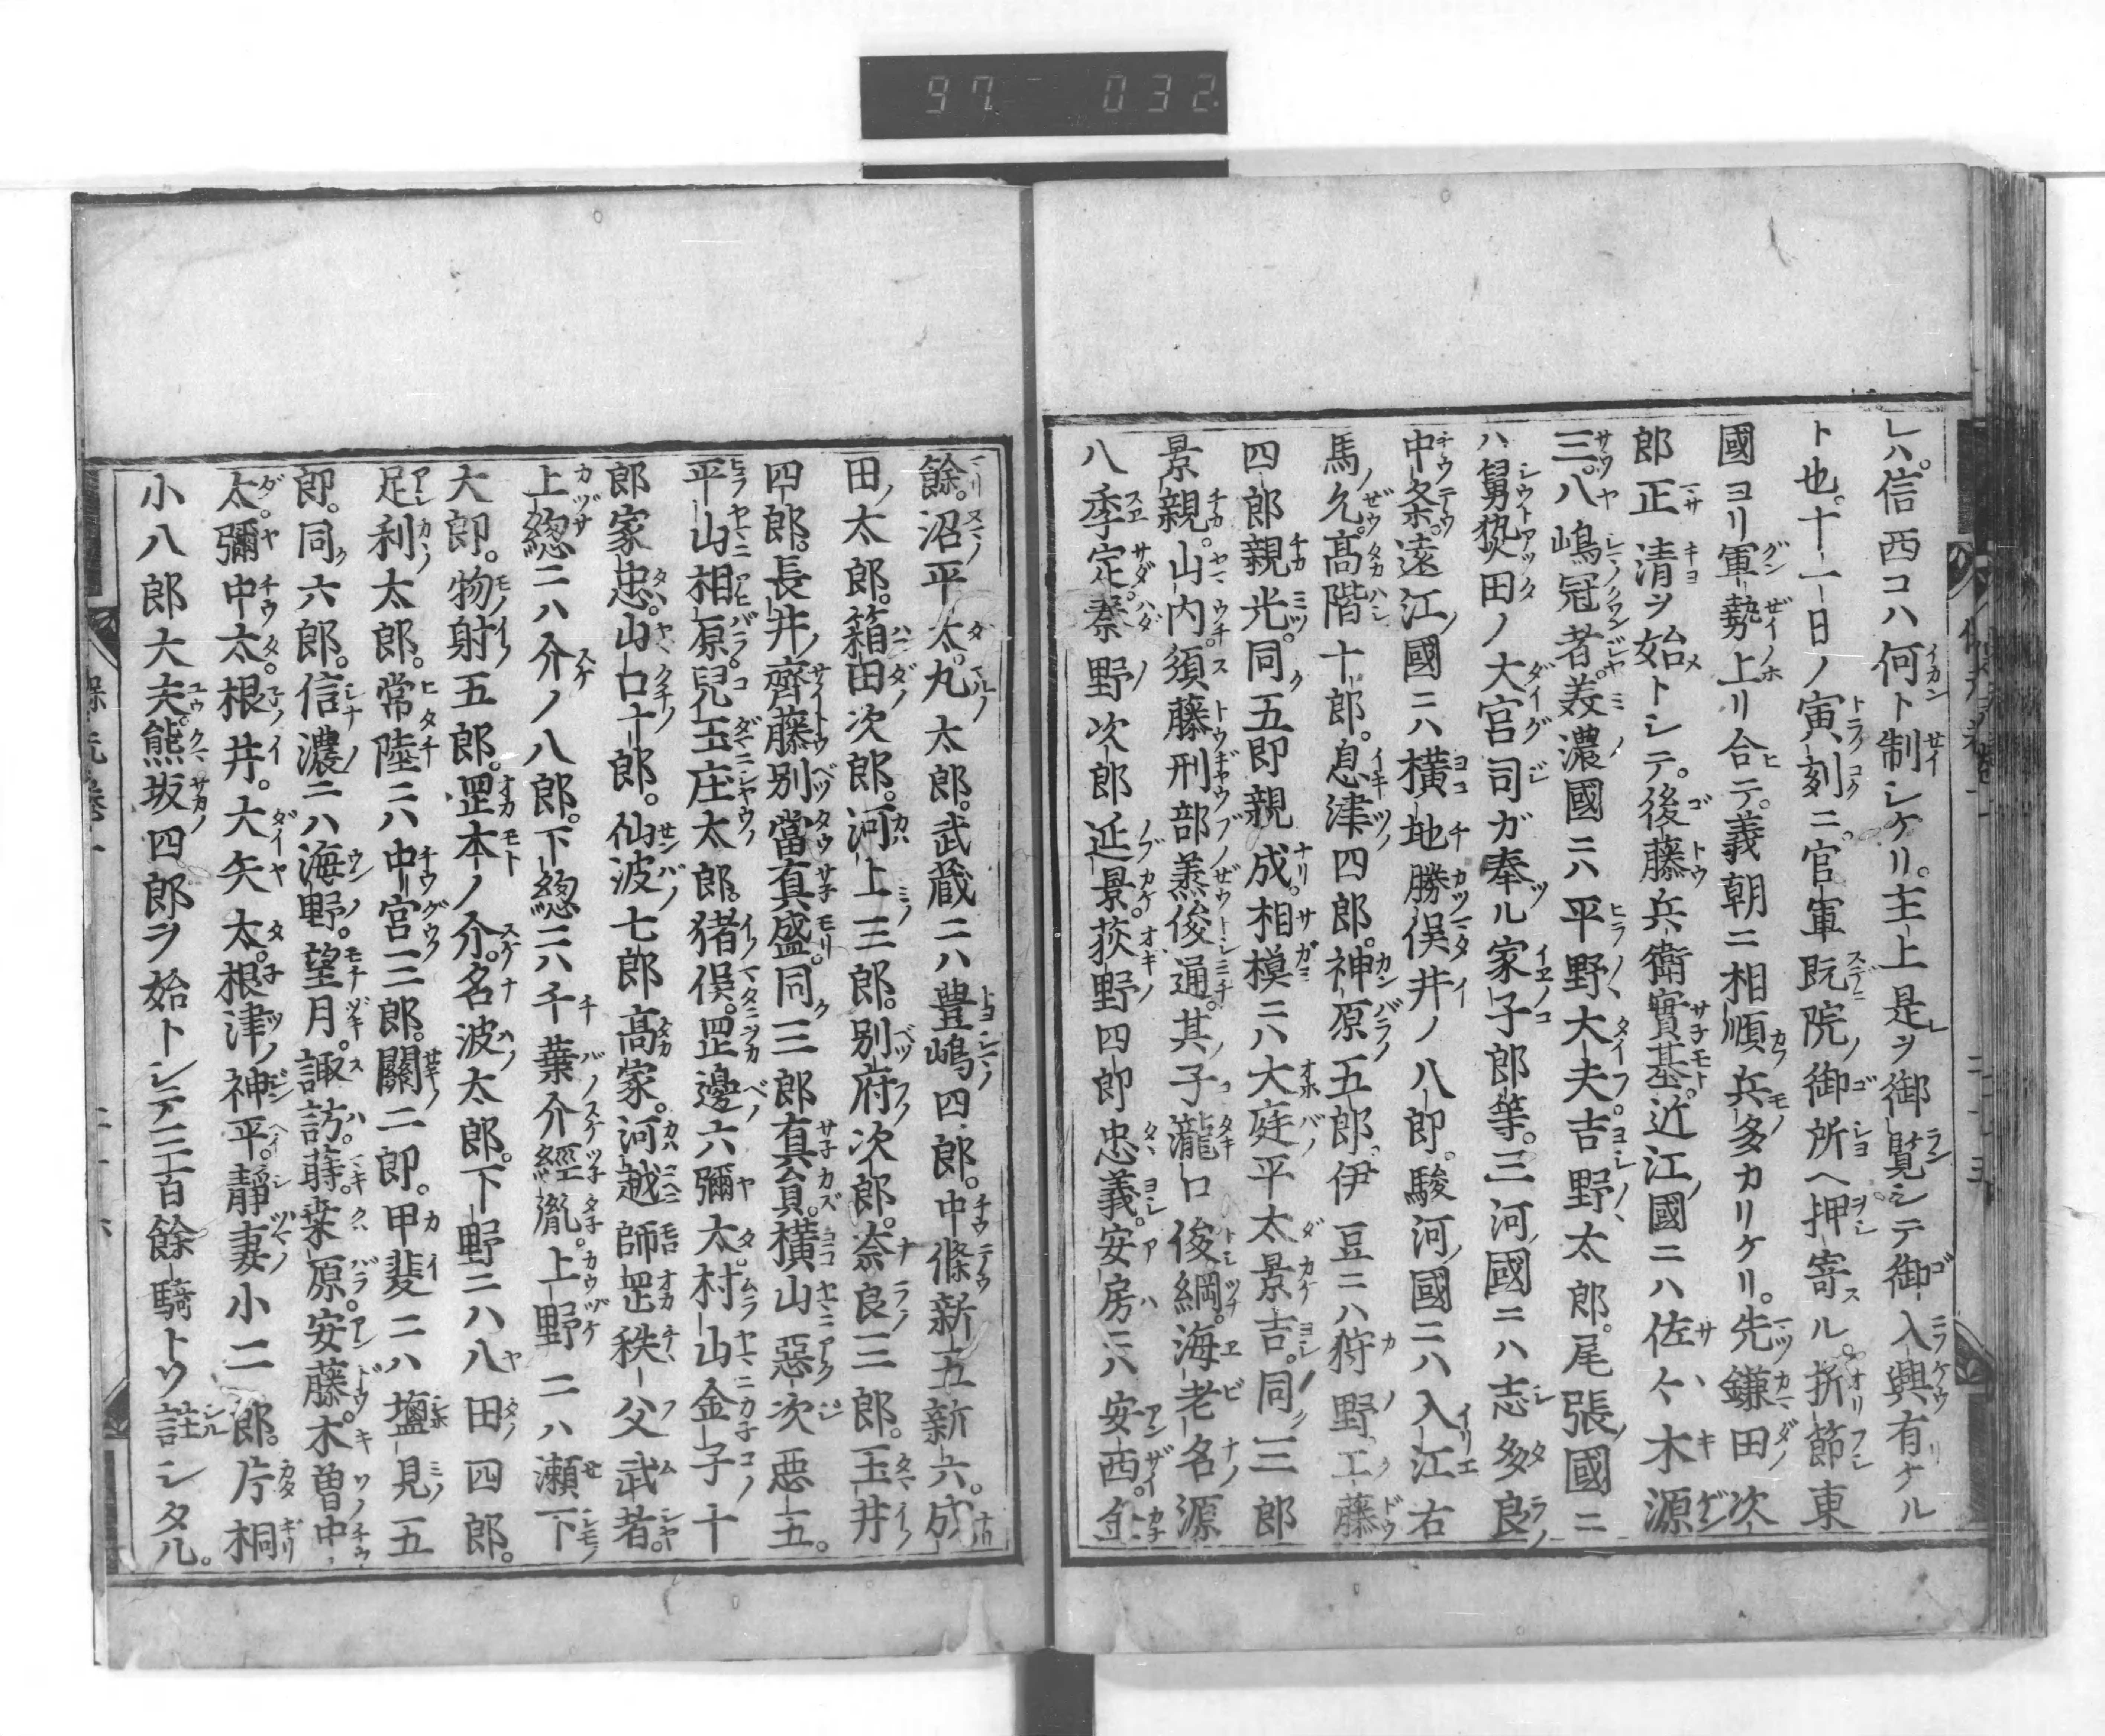 97 032
レハ。信西コハ何ト制シケリ。主上是ヲ御覧シテ御入興有ケル
ト也。十一日ノ寅刻ニ。官軍既院御所ヘ押寄ル。折節東
國ヨリ軍勢上リ合テ。義朝ニ相順兵多カリケリ。先鎌田次
郎正清ヲ始トシテ。後藤兵衛實基。近江國ニハ佐々木源
三。八嶋冠者。美濃國ニハ平野大夫。吉野太郎。尾張國ニ
ハ舅𤍠田ノ大宮司ガ奉ル家子郎等。三河國ニハ志多良
中条。遠江國ニハ横地勝俣井ノ八郎。駿河國ニハ入江右
馬允。髙階十郎。息津四郎。神原五郎。伊豆ニハ狩野工藤
四郎親光。同五郎親成。相模ニハ大庭平太景吉。同三郎
景親。山内須藤刑部𮎰俊通。其子瀧口俊綱。海老名源
八季定。秦野次郎延景。荻野四郎忠義。安房ニハ安西。金
餘。沼平太。丸太郎。武蔵ニハ豊嶋四郎。中條新五新六。成
田太郎。箱田次郎。河上三郎。別府次郎。奈良三郎。玉井
四郎。長井齊藤別當真盛。同三郎真員。横山惡次悪五。
平山相原兒玉庄太郎。猪俣。罡邊六彌太。村山金子十
郎家忠。山口十郎。仙波七郎髙家。河越師罡秩父武者。
上総ニハ介ノ八郎。下総ニハ千葉介經胤。上野ニハ瀬下
大郎。物射五郎。罡本ノ介。名波太郎。下野ニハ八田四郎。
足利太郎。常陸ニハ中宮三郎。關二郎。甲斐ニハ塩見五
郎。同六郎。信濃ニハ海野。望月。諏訪。蒔。桒原。安藤。木曽中
太。彌中太。根井。大矢太。根津神平。靜妻小二郎。片桐
小八郎大夫。熊坂四郎ヲ始トシテ三百餘騎トソ註シタル。